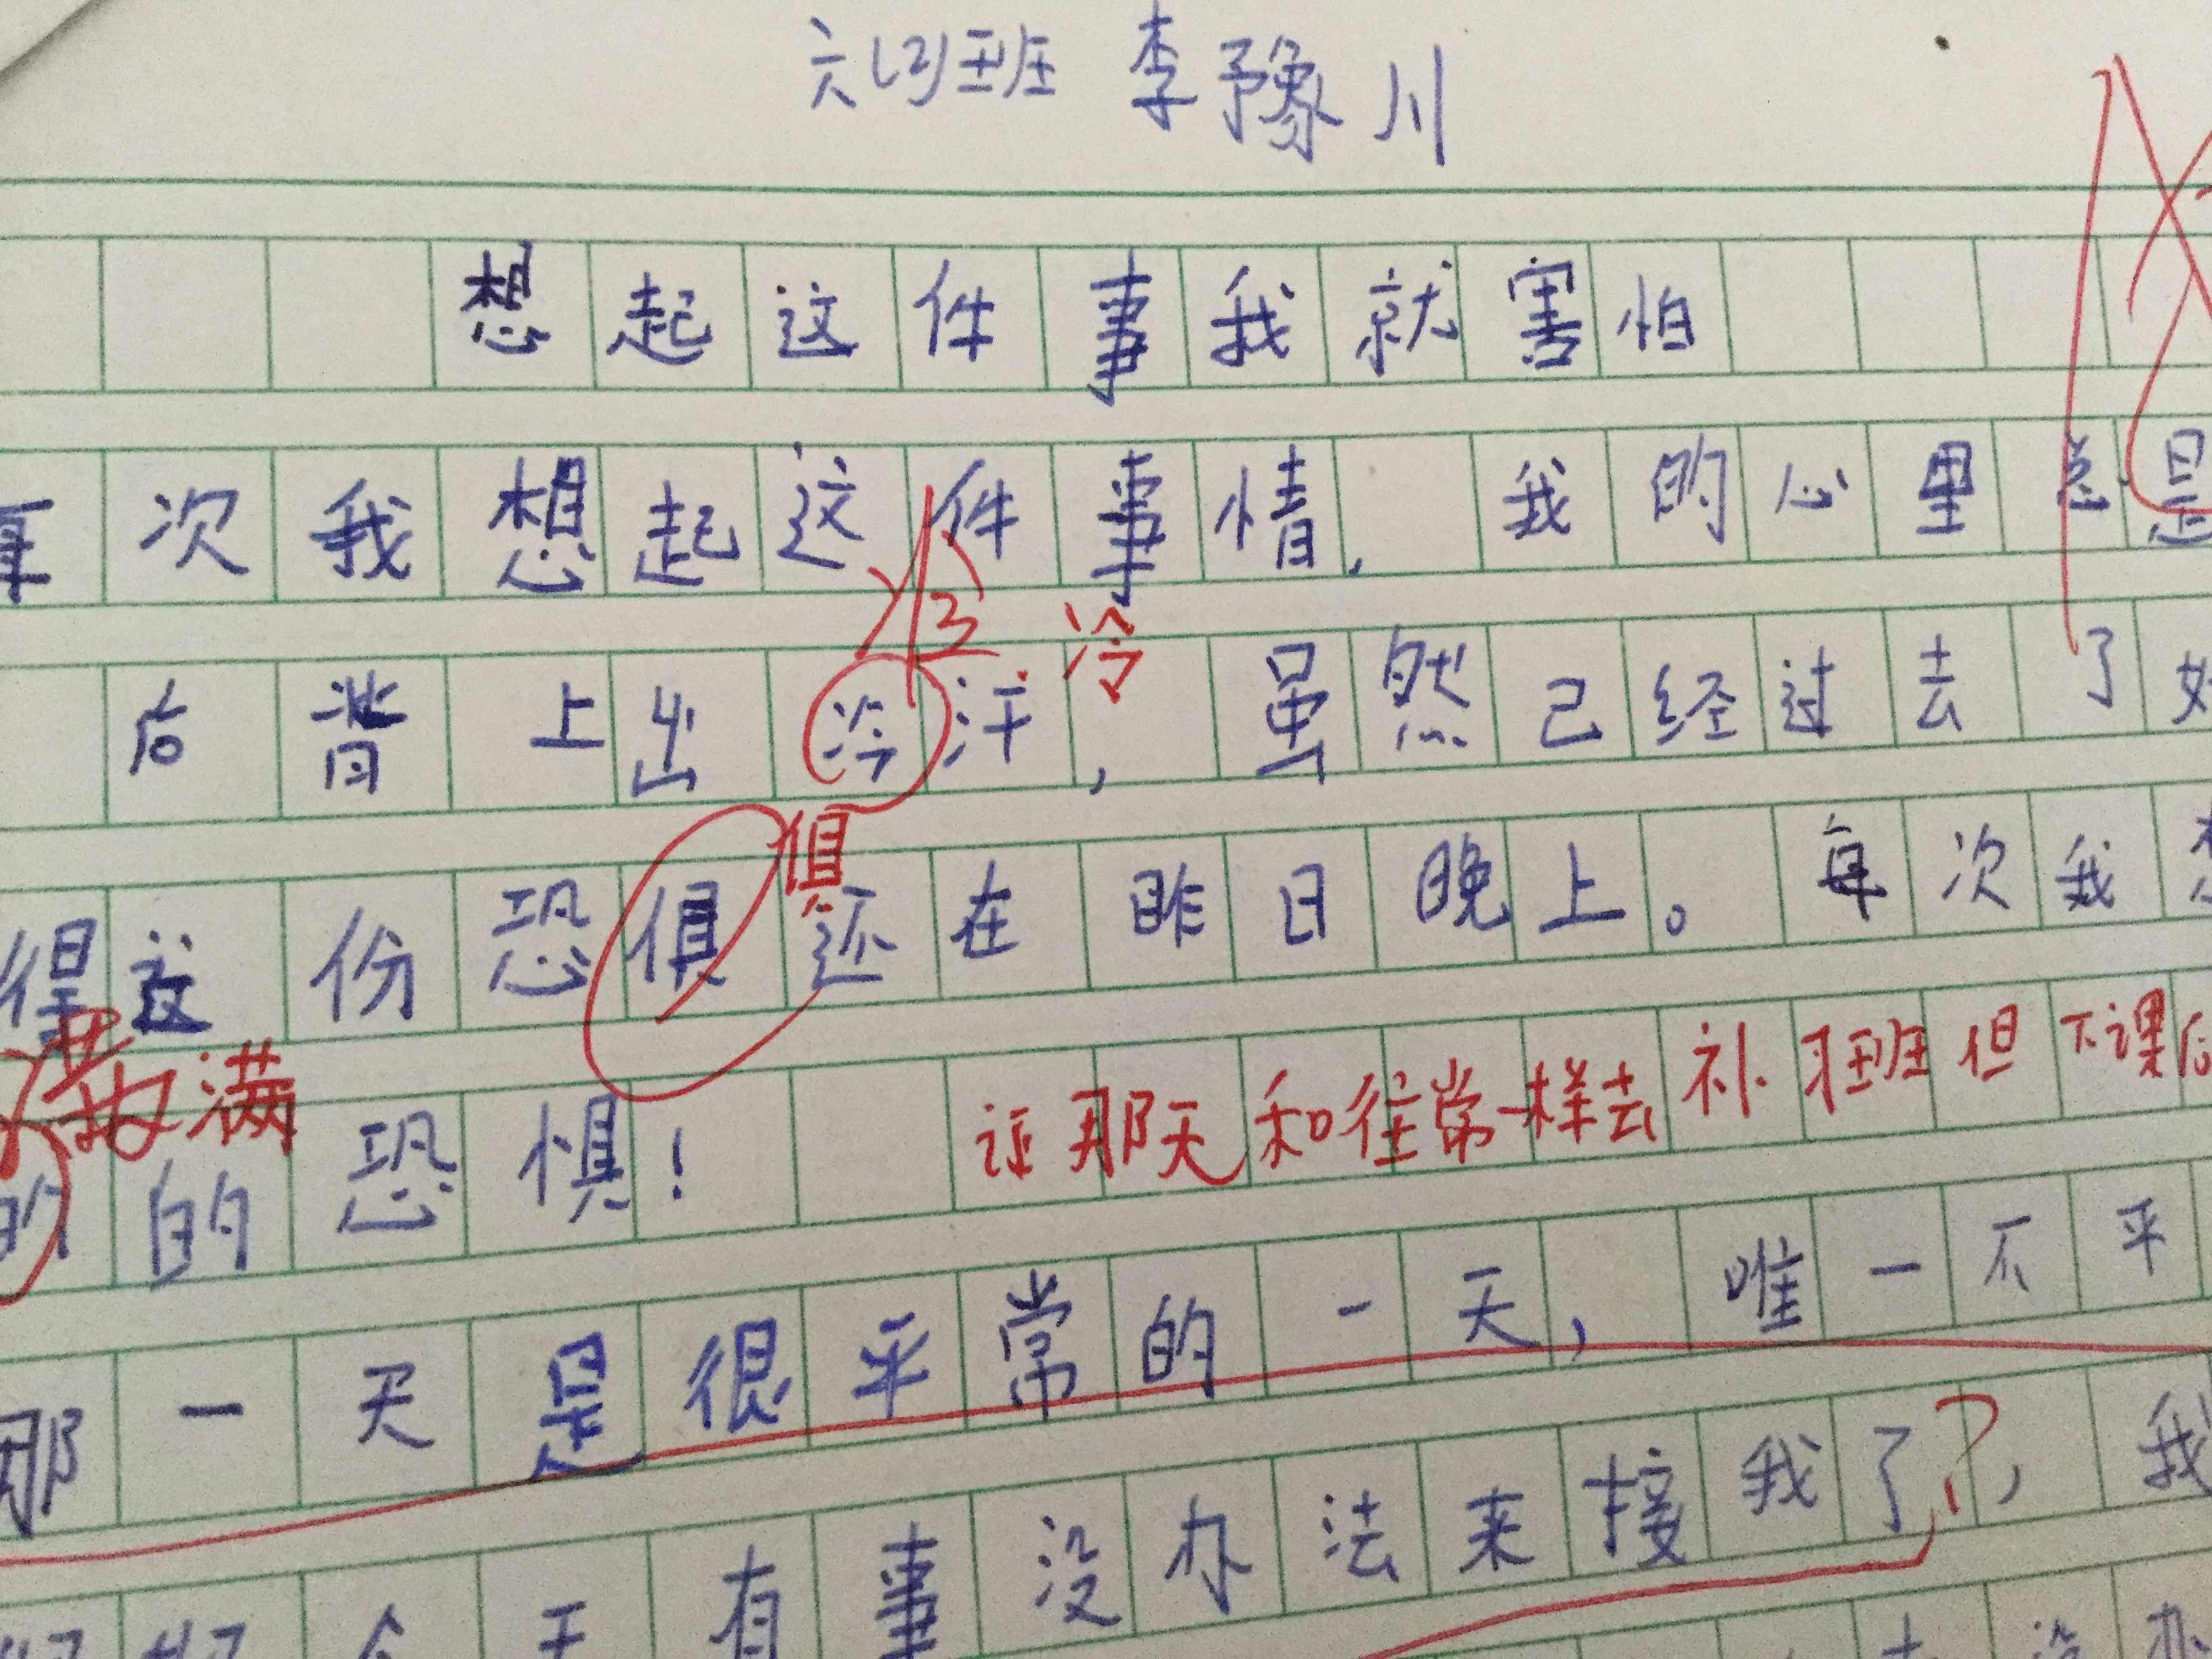 六(2)班 李豫川
想起这件事我就害怕
每次我想起这件事情，我的心里总是
冷
后背上出冷汗，虽然已经过去了好
惧
得这份恐俱还在昨日晚上。每次我想
满满
记那天和往常一样去补习班但下课后
的的恐惧！
那一天是很平常的一天，唯一不平
有事没办法来接我了？，我